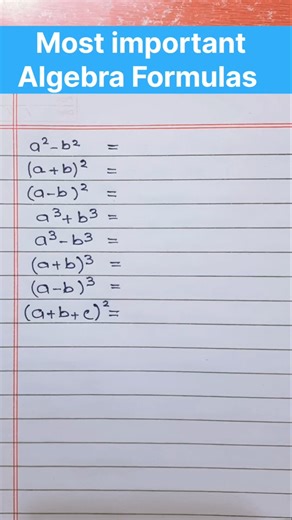 Most important
Algebra Formulas
a²-b² =
(a+b)² =
(a-b)² =
a³+b³ =
a³-b³ =
(a+b)³ =
(a-b)³ =
(a+b+c)² =